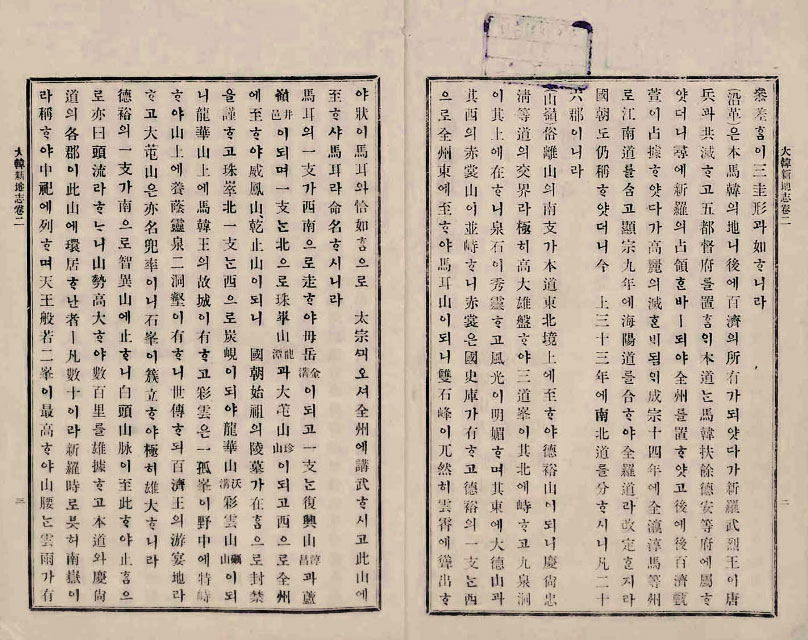 叅差홈이三圭形과如하니라
(沿革)은本馬韓의地니後에百濟의所有가되얏다가新羅武烈王이唐
兵과共滅하고五都督府를置홈애本道는馬韓扶餘德安等府에屬하
얏더니尋에新羅의占領한바ㅣ되야全州를置하얏고後에後百濟甄
萱이占據하얏다가高麗의滅한비됨애成宗十四年에全瀛淳馬等州
로江南道를合고顯宗九年에海陽道를合하야全羅道라改定한지라
國朝도仍稱하얏더니今 上三十三年에南北道를分하시니凡二十
六郡이니라
(山嶺)俗離山의南支가本道東北境上에至하야德裕山이되니慶尙忠
淸等道의交界라極히高大雄盤하야三道峯이其北에峙하고九泉洞
이其上에在하니泉石이秀靈하고風光이明媚하며其東에大德山과
其西의赤裳山이並峙하니赤裳은國史庫가有하고德裕의一支는西
으로全州東에至하야馬耳山이되니雙石峰이兀然히雲霄에聳出하
大韓新地志卷二
二
야狀이馬耳와恰如홈으로 太宗께오셔全州에講武하시고此山에
至하샤馬耳라命名하시니라
馬耳의一支가西南으로走하야母岳山金溝이되고一支는復興山淳昌과蘆
嶺井邑이되며一支는北으로珠崒山龍潭과大芚山珍山이되고西으로全州
에至하야威鳳山乾止山이되니 國朝始祖의陵墓가在홈으로封禁
을謹하고珠崒北一支는西으로炭峴이되야龍華山沃溝彩雲山礪山이되
니龍華山上에馬韓王의故城이有하고彩雲은一孤峯이野中에特峙
하야山上에養蔭靈泉二洞壑이有하니世傳하되百濟王의游宴地라
하고大芚山은亦名兜率이니石峯이簇立하야極히雄大하니라
德裕의一支가南으로智異山에止하니白頭山脉이至此하야止홈으
로亦曰頭流라하는니山勢高大하야數百里를雄據하고本道와慶尙
道의各郡이此山에環居하난者ㅣ凡數十이라新羅時로븟허南嶽이
라稱하야中祀에列하며天王般若二峯이最高하야山腰는雲雨가有
大韓新地志卷二
三